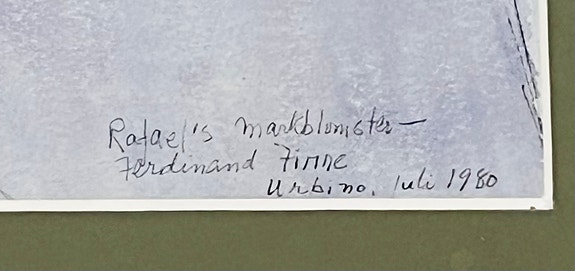 Rafael's markblomster—
Ferdinand Finne
Urbino. Juli 1980